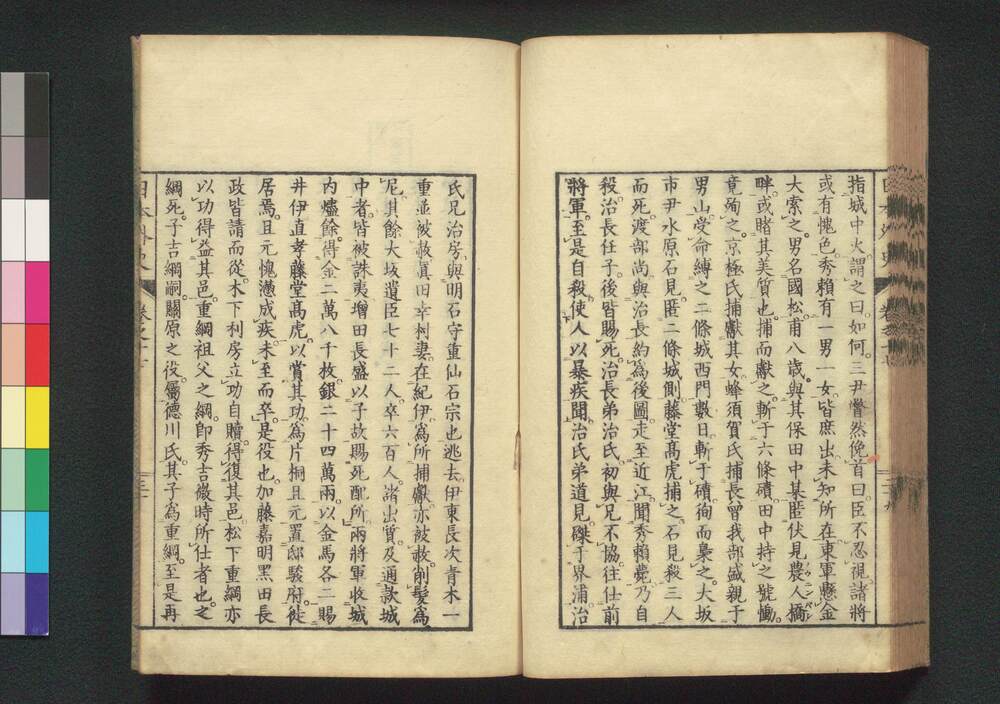 指城中火謂之曰如何三尹瞢然俛首曰臣不忍視諸將
或有愧色秀賴有一男一女皆庶出未知所在東軍懸金
大索之男名國松甫八歲與其保田中某匿伏見農人橋
畔或睹其美質也捕而獻之斬于六條磧田中持之號慟
竟殉之京極氏捕獻其女蜂須賀氏捕長曾我部盛親于
男山受命縛之二條城西門數日斬于磧徇而梟之大坂
市尹水原石見匿二條城側藤堂高虎捕之石見殺三人
而死渡部尚與治長約爲後圖走至近江聞秀賴薨乃自
殺治長任子後皆賜死治長弟治氏初與兄不協往仕前
將軍至是自殺使人以暴疾聞治氏弟道見磔于界浦治
氏兄治房與明石守重仙石宗也逃去伊東長次青木一
重並被赦眞田幸村妻在紀伊爲所捕獻亦被赦削髮爲
尼其餘大坂遺臣七十二人卒六百人諸出質及通款城
中者皆被誅夷增田長盛以子故賜死配所兩將軍收城
內燼餘得金二萬八千枚銀二十四萬兩以金馬各二賜
井伊直孝藤堂高虎以賞其功爲片桐且元置邸駿府徙
居焉且元愧懣成疾未至而卒是役也加藤嘉明黑田長
政皆請而從木下利房立功自贖得復其邑松下重綱亦
以功得益其邑重綱祖父之綱卽秀吉微時所仕者也之
綱死子吉綱嗣關原之役屬德川氏其子爲重綱至是再
日本外史 卷之